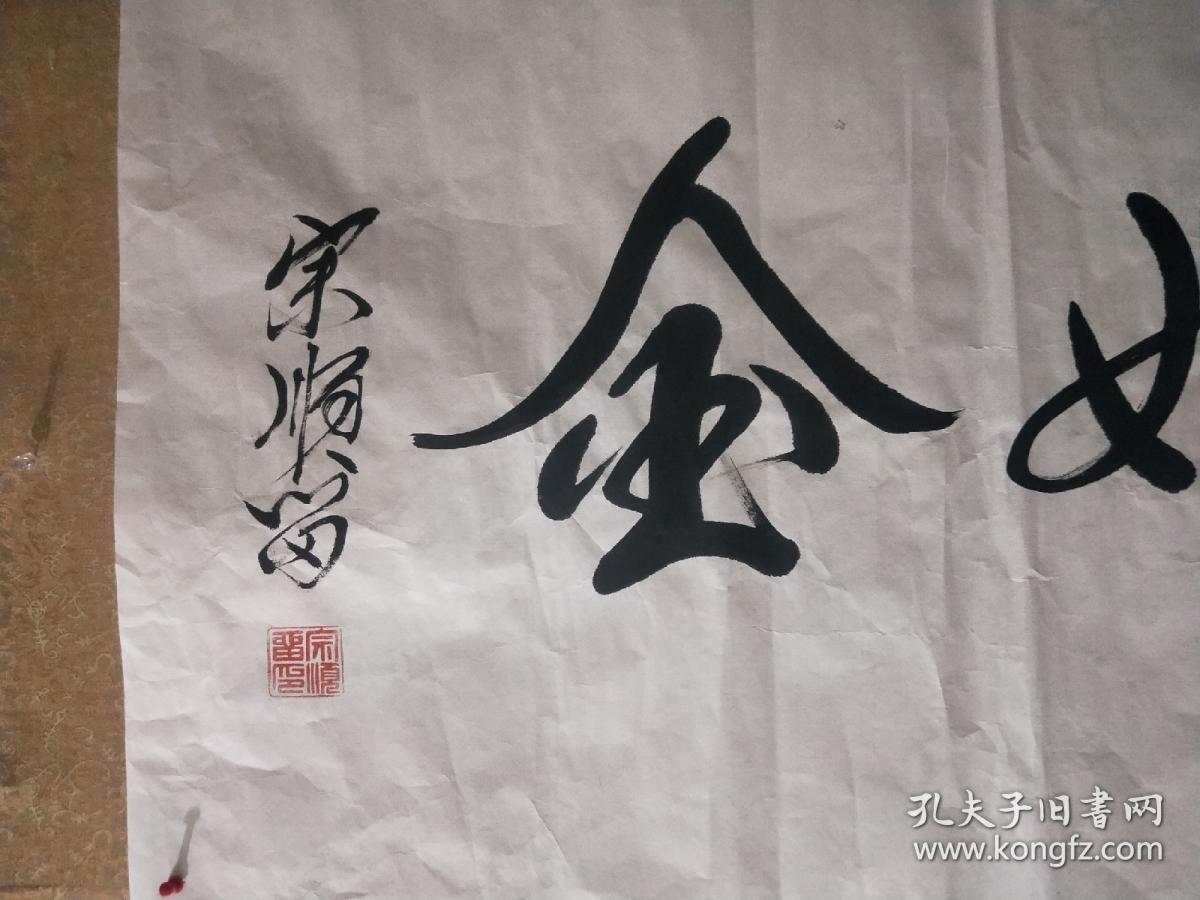 金
宗顺留
宗順留印
孔夫子旧書网
www.kongfz.com